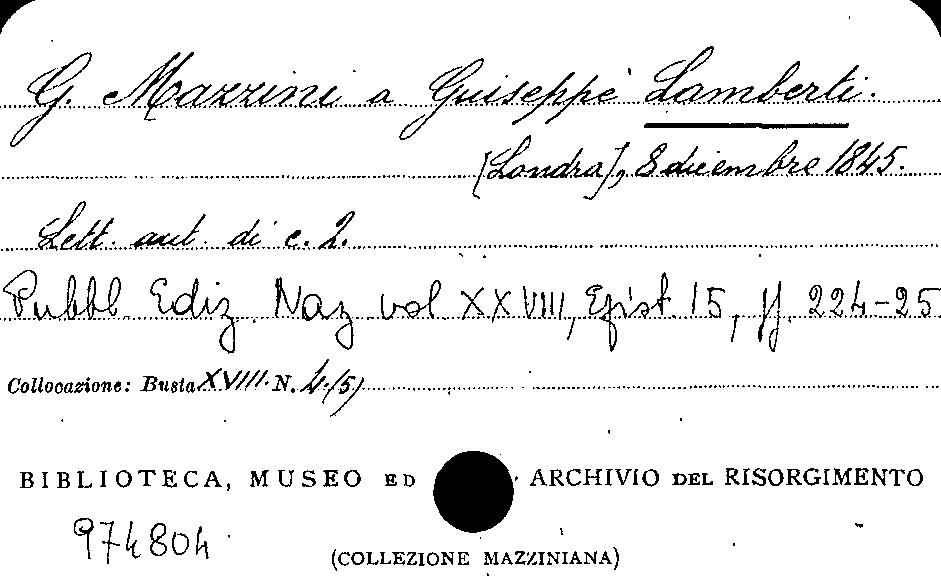 G. Mazzini a Guiseppe Lamberti.
[Londra], 8 diciembre 1845.
Lett. aut. di c. 2.
Pubbl. Ediz. Naz. vol XXVIII, Epist. 15, pp. 224-25.
Collocazione: Busta XVIII. N. 4/5)
BIBLIOTECA, MUSEO ED ARCHIVIO DEL RISORGIMENTO
974804
(COLLEZIONE MAZZINIANA)